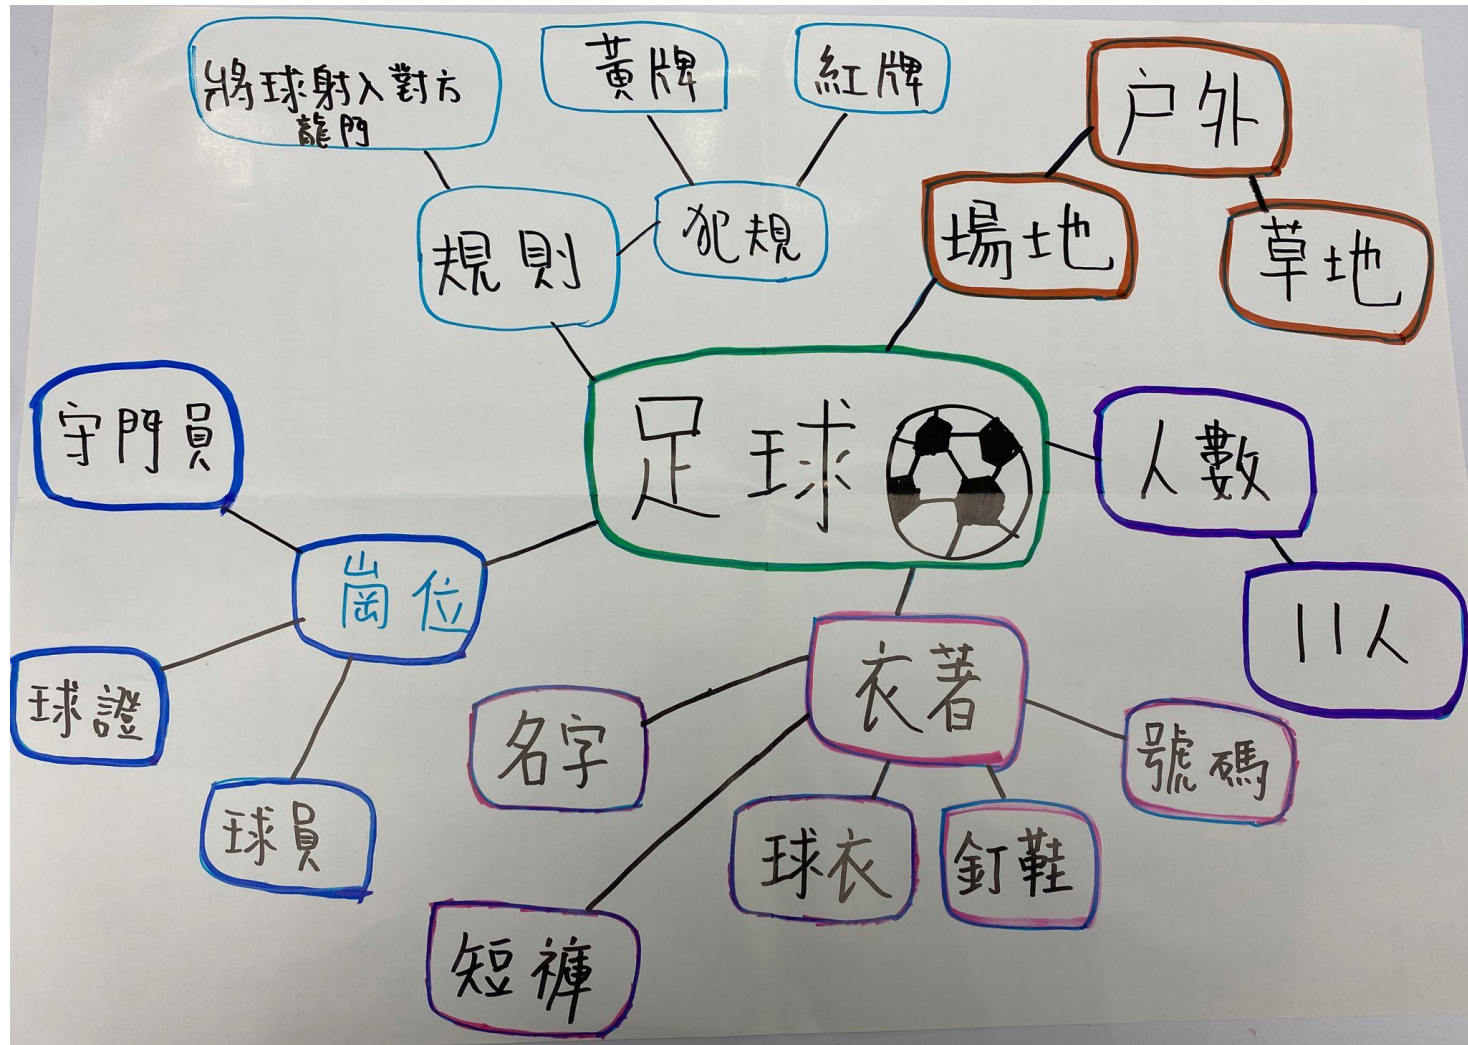 將球射入對方
龍門
黃牌
紅牌
户外
規則
犯規
場地
草地
守門員
足球
人數
崗位
11人
球證
衣著
名字
號碼
球員
球衣
釘鞋
短褲